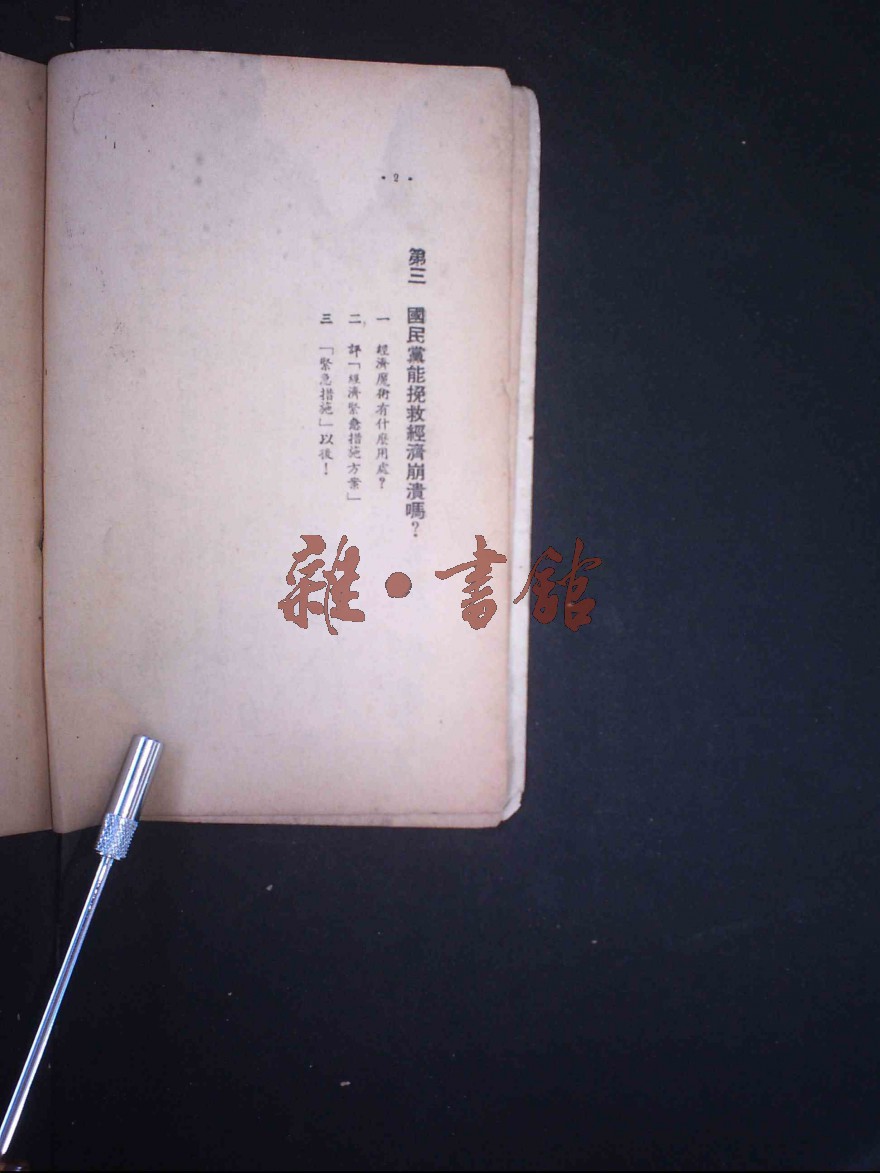 ·2·
第三　國民黨能挽救經濟崩潰嗎？
一　經濟魔術有什麼用處？
二　評「經濟緊急措施方案」
三　「緊急措施」以後！
雜·書館